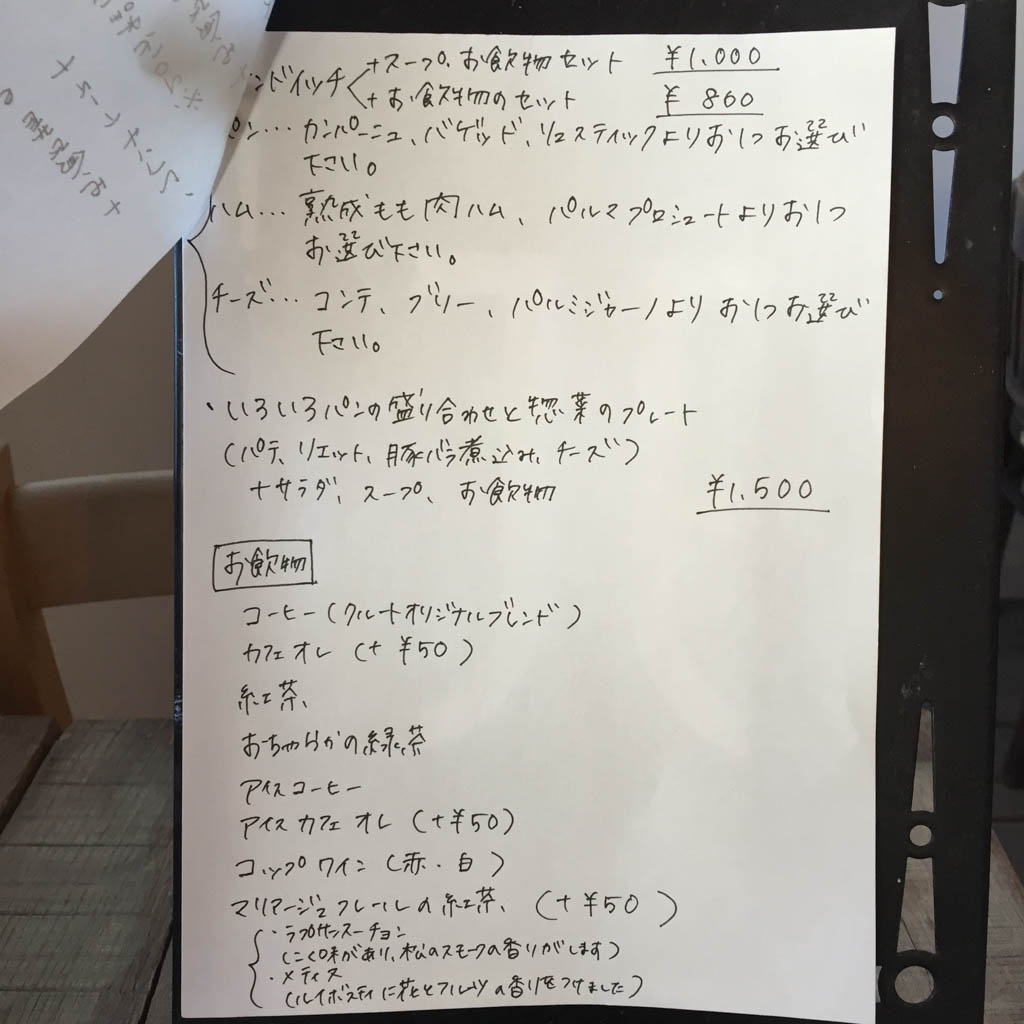 ンドイッチ +スープ、お飲物セット ¥1,000
+お飲物のセット ¥800
パン… カンパーニュ、バゲッド、リュスティックよりお1つお選び
下さい。
ハム… 熟成もも肉ハム、パルマプロシュートよりお1つ
お選び下さい。
チーズ… コンテ、ブリー、パルミジャーノよりお1つお選び
下さい。
・いろいろパンの盛り合わせと惣菜のプレート
(パテ、リエット、豚バラ煮込み、チーズ)
+サラダ、スープ、お飲物 ¥1,500
お飲物
コーヒー(クルートオリジナルブレンド)
カフェオレ(+¥50)
紅茶、
おちゃらかの緑茶
アイスコーヒー
アイスカフェオレ(+¥50)
コップワイン(赤・白)
マリアージュフレールの紅茶、(+¥50)
・ラプサンスーチョン
(こく味があり、松のスモークの香りがします)
・メティス
(ルイボスティに花とフルーツの香りをつけました)